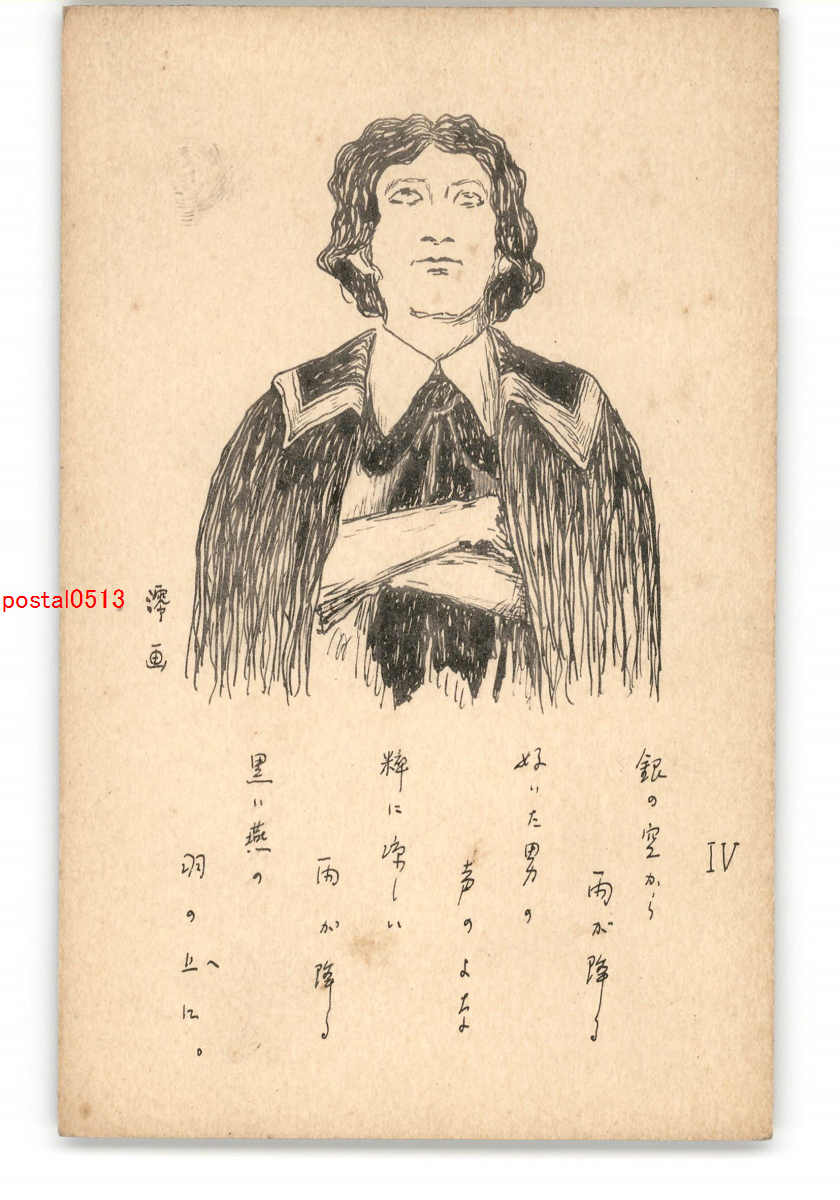 IV
銀の空から
雨が降る
好いた男の
声のよな
粋に涼しい
雨が降る
黒い燕の
羽の上へに。
澪画
postal0513